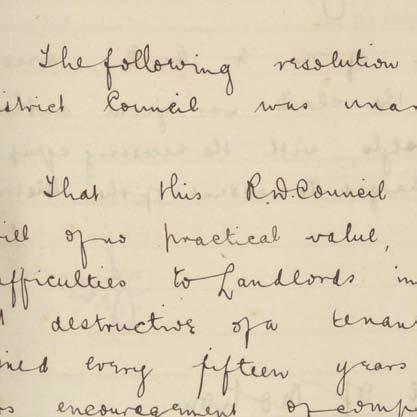 The following resolution
istrict Council was unan
That this R.D. Council
ill of no practical value,
ifficulties to Landlords in
destructive of a tenan
ined every fifteen years
encouragement of comp